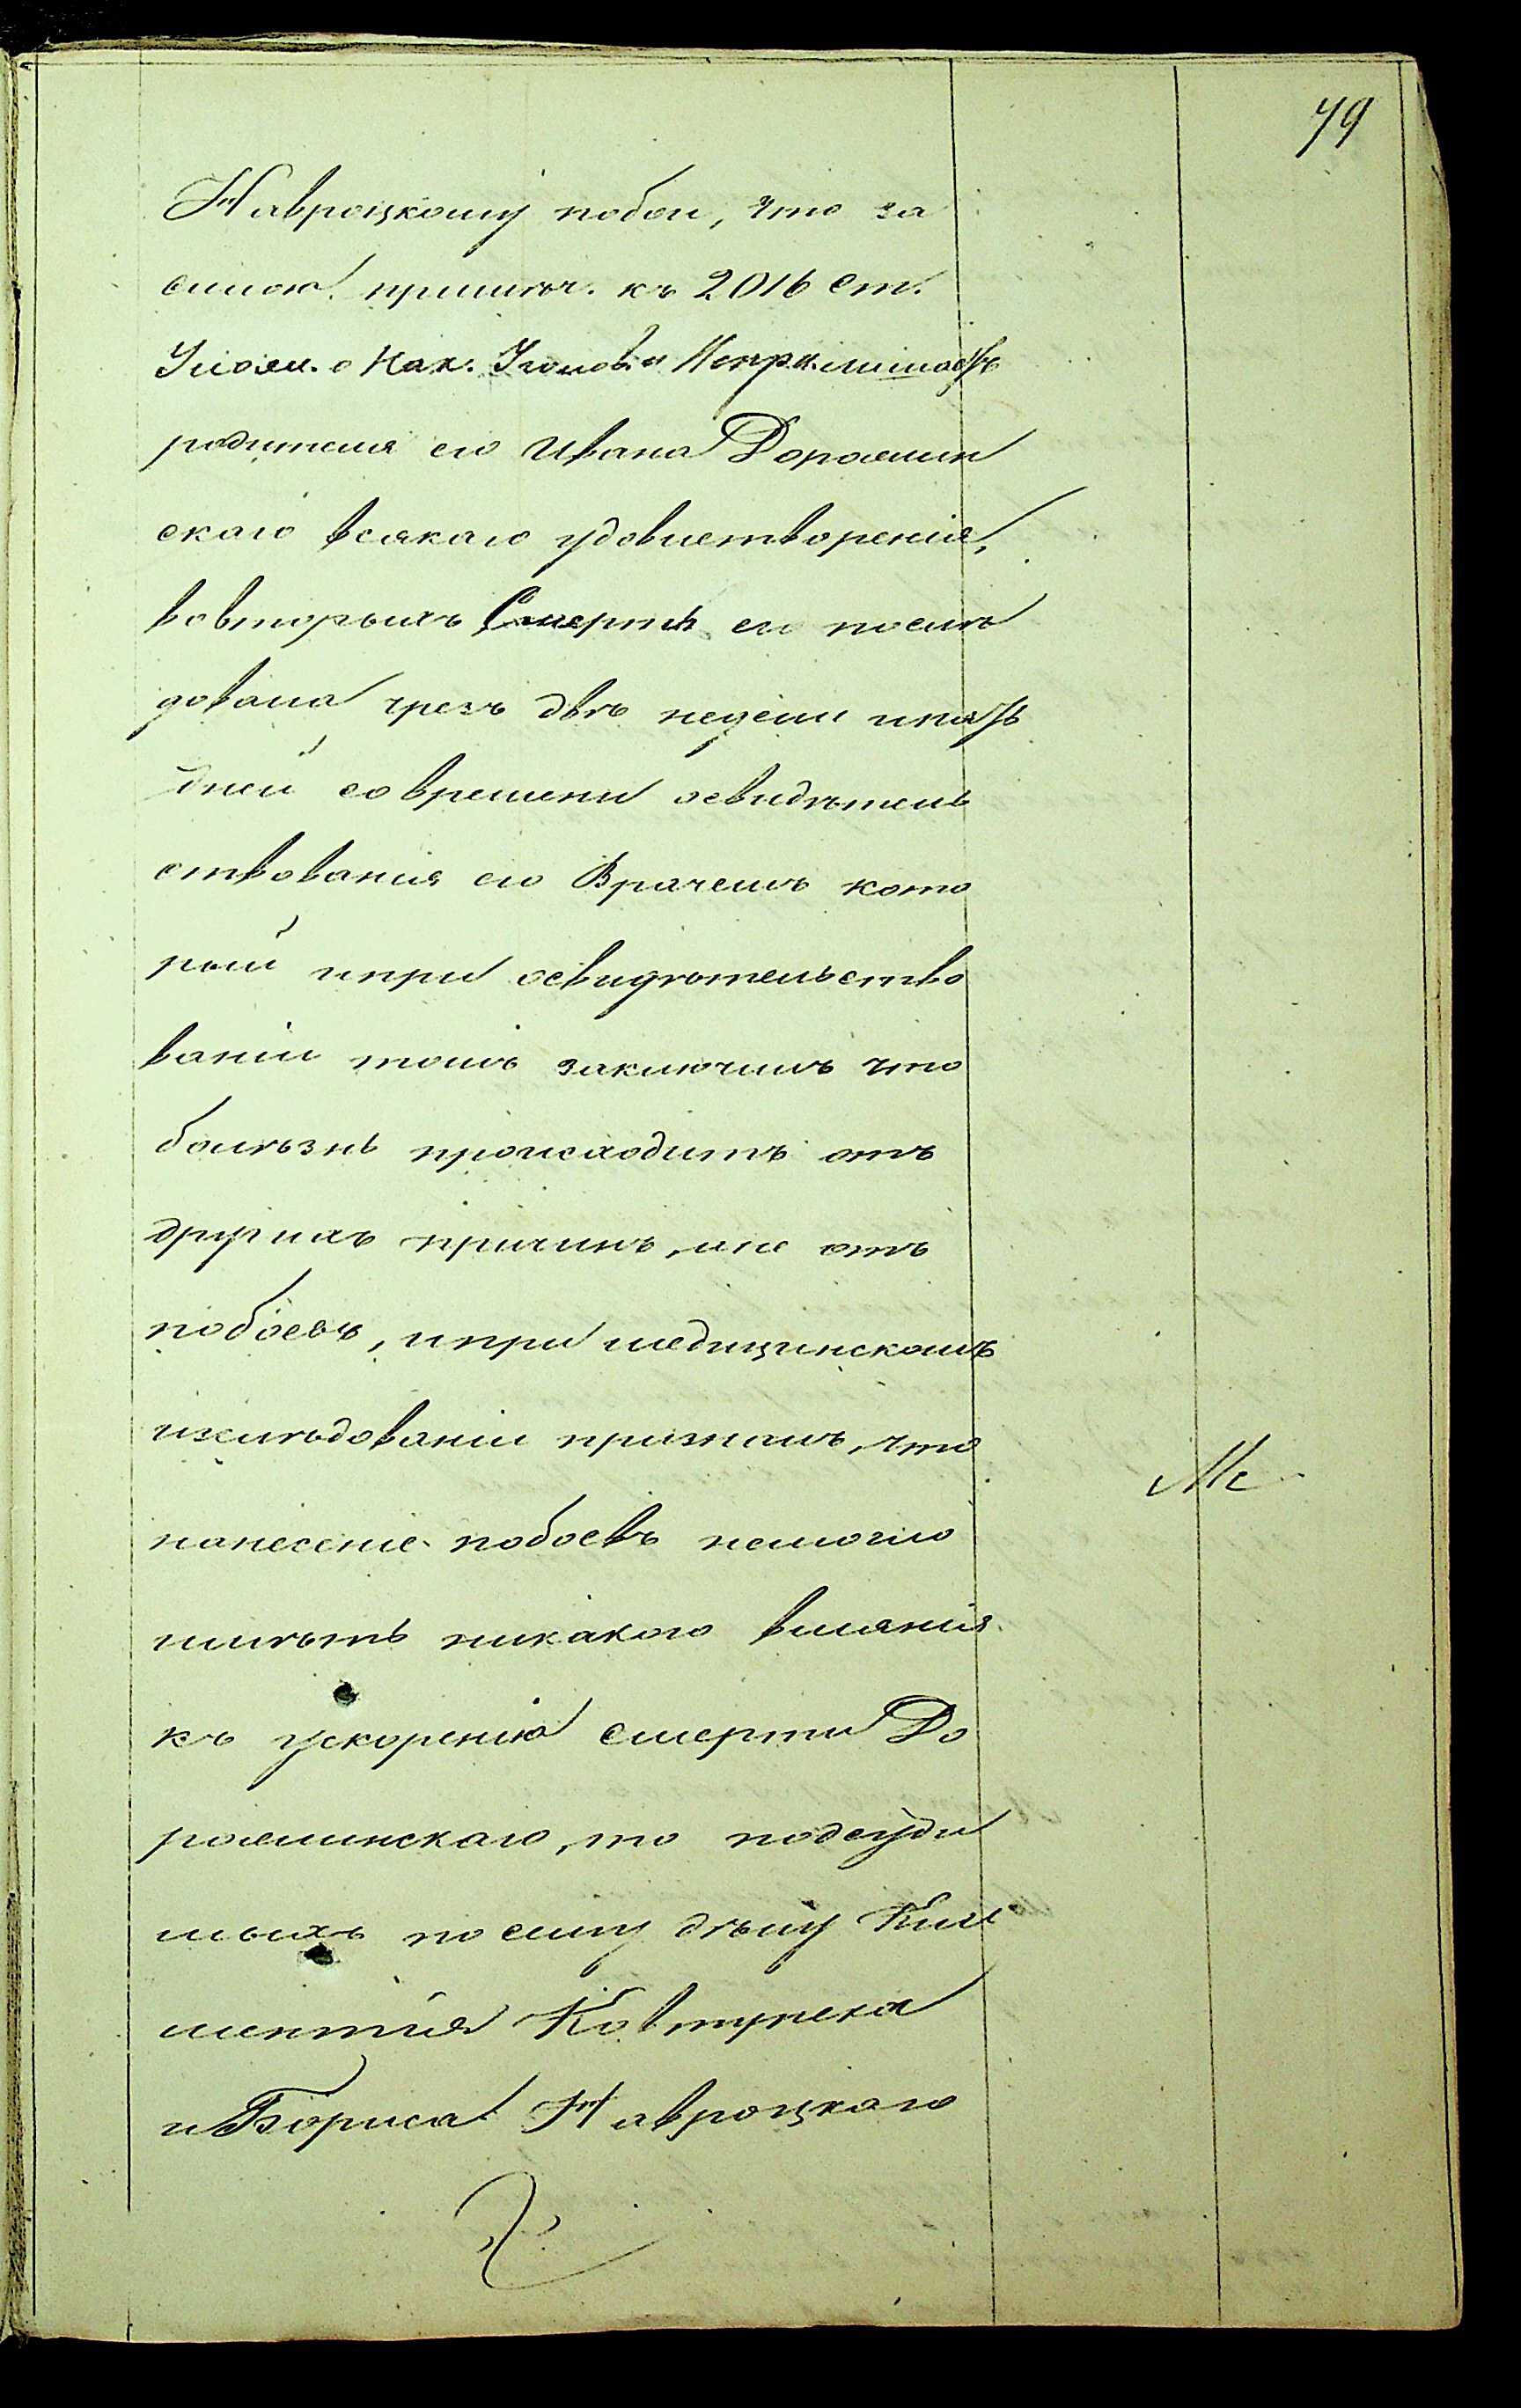 79
Навроцкому побои, что за
силою примѣч. къ 2016 ст.
Улож. о Нак. Уголов. и Исправ. лишаетъ
родителя его Ивана Дорожин
скаго всякаго удовлетворенія,
вовторыхъ Смерть его послѣ
довала чрезъ двѣ недѣли ипять
дней со времени освидѣтель
ствованія его Врачемъ кото
рый ипри освидѣтельство
ваніи томъ заключилъ что
болѣзнь происходитъ отъ
другихъ причинъ, ане отъ
побоевъ, ипри медицинскомъ
изслѣдованіи призналъ, что
нанесеніе побоевъ немогло
имѣть никакого вліянія
къ ускоренію смерти До
рожинскаго, то подсуди
мыхъ по сему дѣлу Кли
ментія Ковтуна
и Бориса Навроцкаго